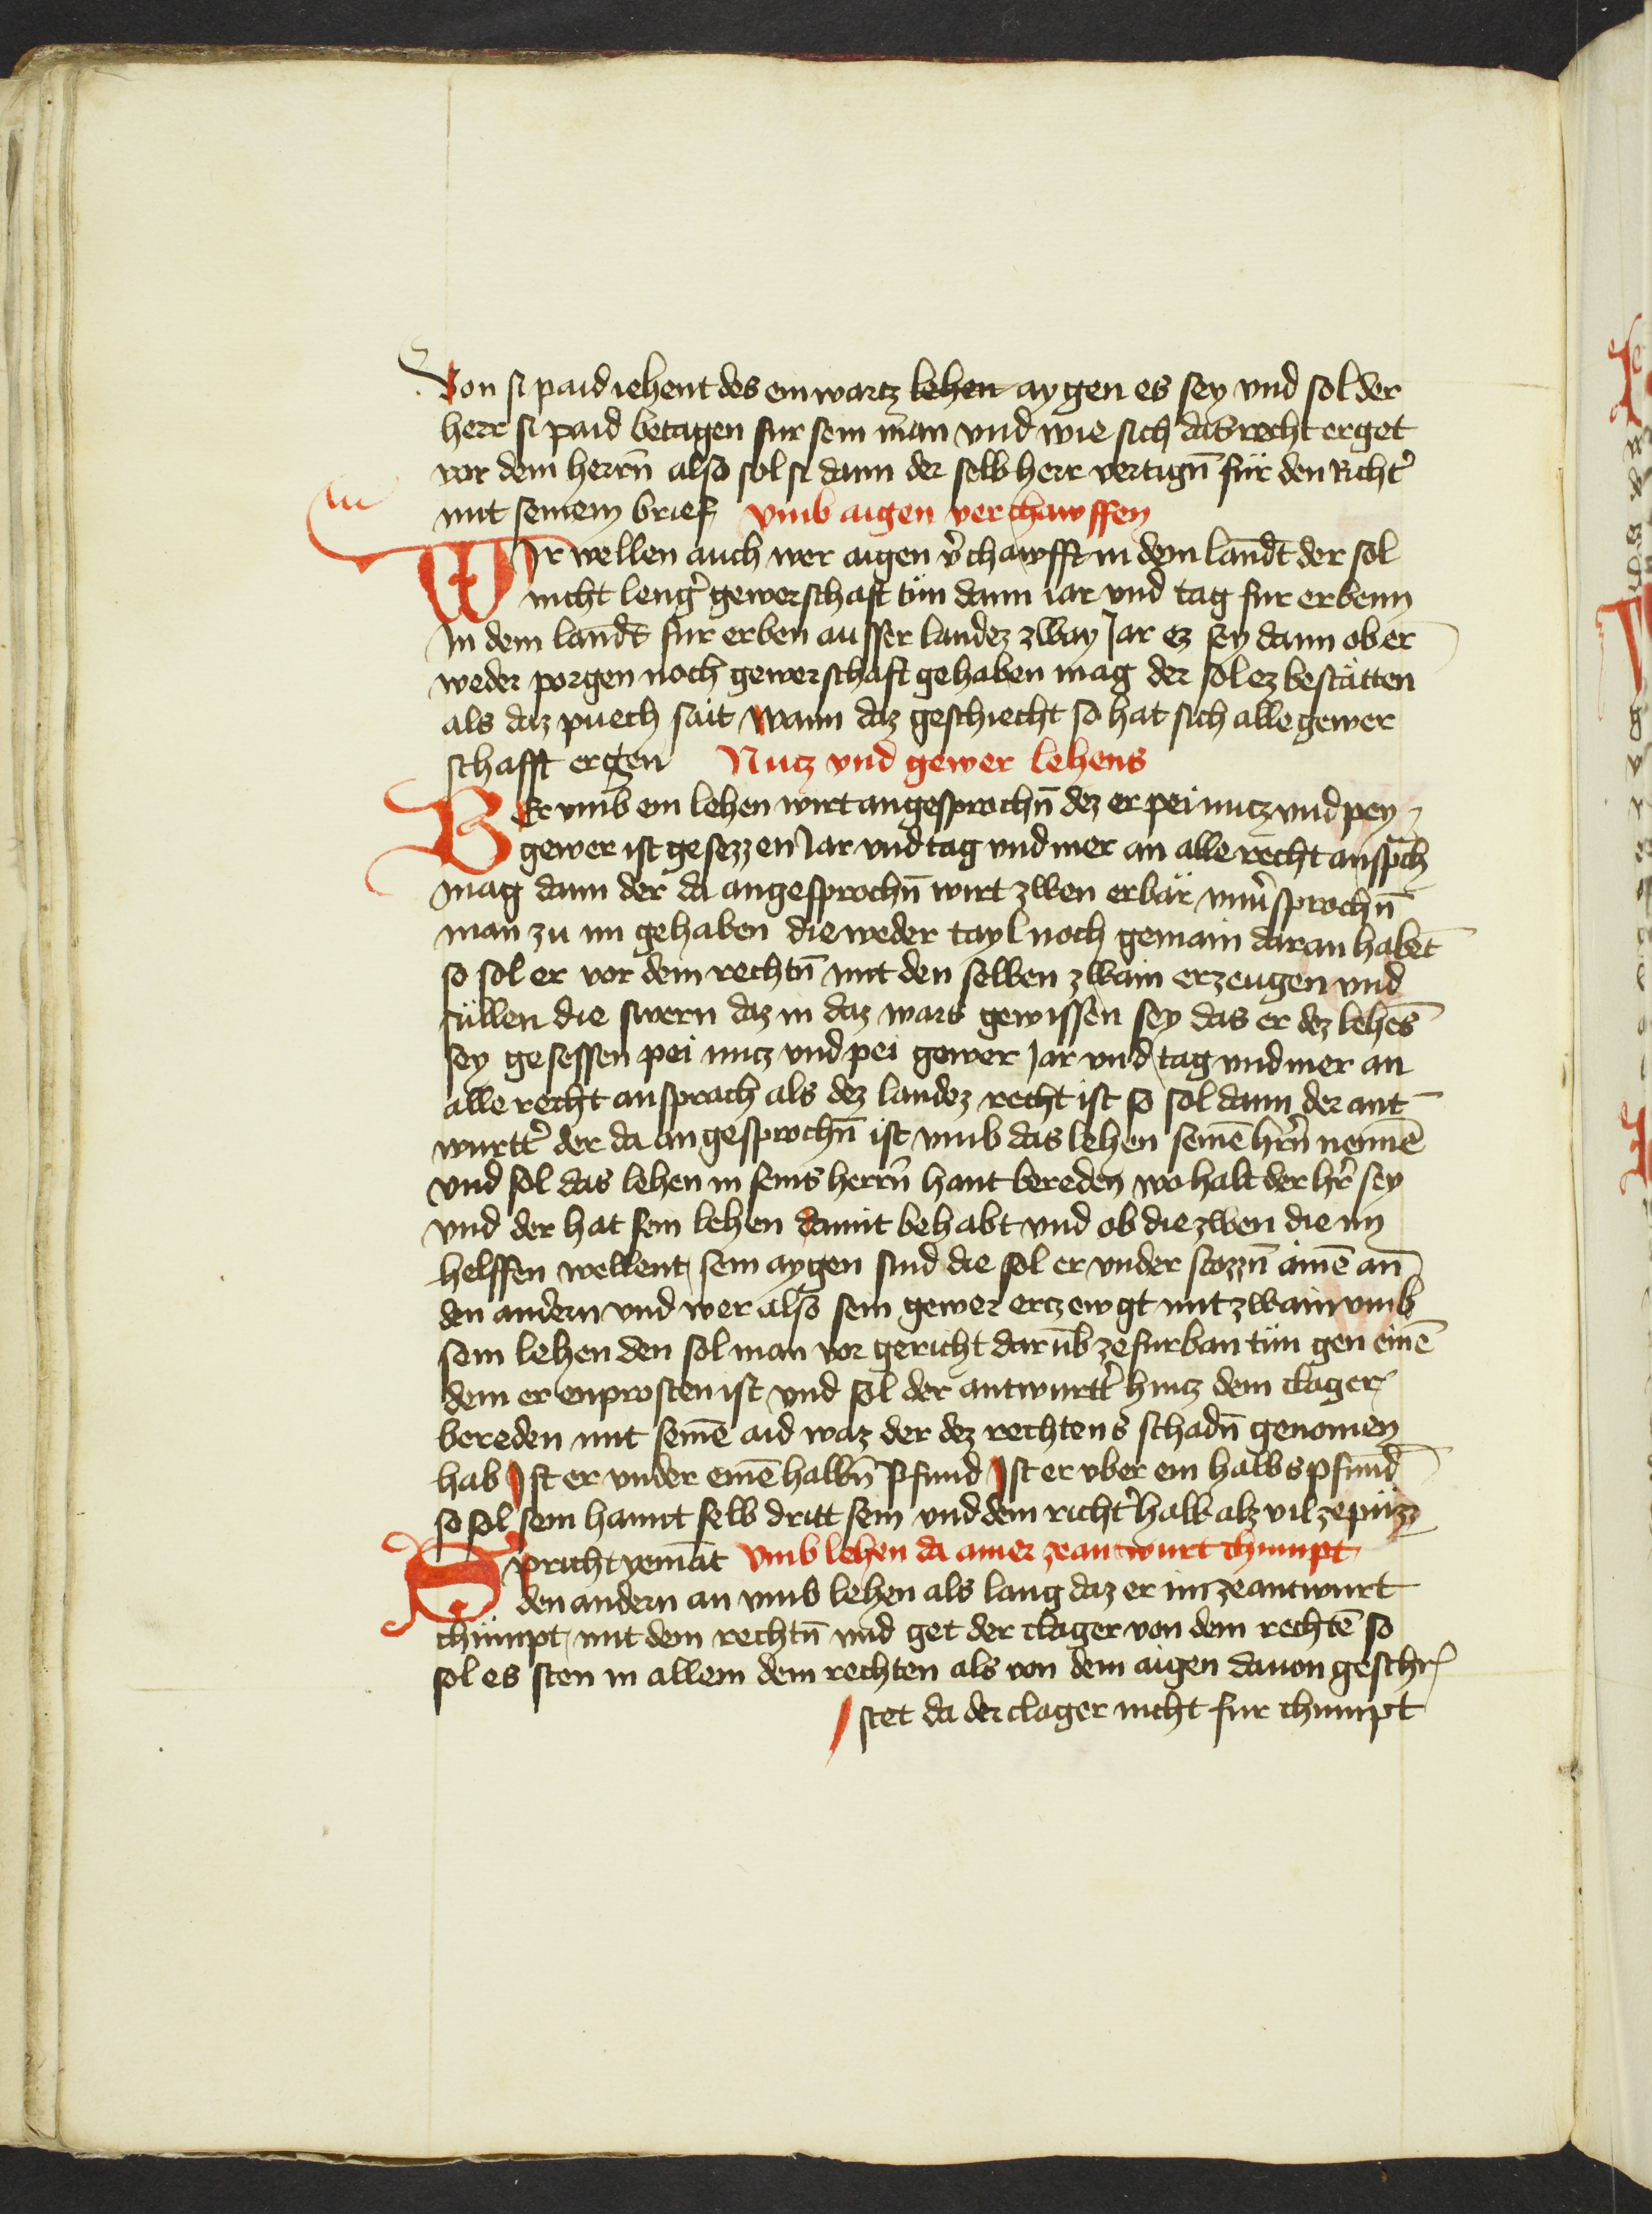 Von si paid iehent des ein wartz lehen aygen es sey vnd sol der
herr si paid betagen fur sein man vnd wie sich das recht erget
vor dem herrn̄ also sol si dann der selb herr vertign̄ für den Richt̉
mit seinem brief vmb aigen verchawffen
WIr wellen auch wer aigen v̉chawfft in dem landt der sol
nicht leng̉ gewerschaft tün dann iar vnd tag fur erbenn
In dem landt fur erben ausser landez zway Jar ez sey dann ob er
weder porgen noch gewerschaft gehaben mag der sol ez bestätten
als daz puech sait wann daz geschiecht so hat sich alle gewer
schafft ergen Nutz vnd gewer lehens
WEr vmb ein lehen wirt angesprochn̄ dez er pei nutz vnd pey
gewer ist gesezzen Jar vnd tag vnd mer an alle recht anspch
mag dann der da angesprochn̄ wirt zwen erbär vnủsprochn̄
man zu im gehaben die weder tayl noch gemain daran habet̄
so sol er vor dem rechtn̄ mit den selben zwain erzeugen vnd
süllen die swern daz in daz wars gewissen sey das er dez lehēs
sey gesessen pei nutz vnd pei gewer Jar vnd tag vnd mer an
alle recht ansprach als dez landez recht ist so sol dann der ant
wurtt̉ der da angesprochn̄ ist vmb das lehen seinē hrn̉ nennē
vnd sol das lehen in seins herrn̄ hant bereden wo halt der hr̉ sey
vnd der hat sein lehen damit behabt vnd ob die zwen die im
helffen wellent sein aygen sind die sol er vnder stozzn̄ ainē an̄
den andern vnd wer also sein gewer ertzewgt mit zwain vmb
sein lehen den sol man vor gericht darūb ze furban tün gen einē
dem er enprosten ist vnd sol der antwurtt̉ hintz dem clager
bereden mit seinē aid waz der dez rechtens schadn̄ genomen
hab Ist er vnder einē halbn̄ pfund Ist er vber ein halbs pfund
so sol sein hannt selb dritt sein vnd dem richt̉ halb alz vil ze püzz
Spricht yemāt vmb lehen da ainer ze antwurt chumpt
den andern an vmb lehen als lang daz er im ze antwurt
chümpt mit dem rechtn̄ vnd get der clager von dem rechtē so
sol es sten in allem dem rechten als von dem aigen dauon geschr
stet da der clager nicht fur chumpt